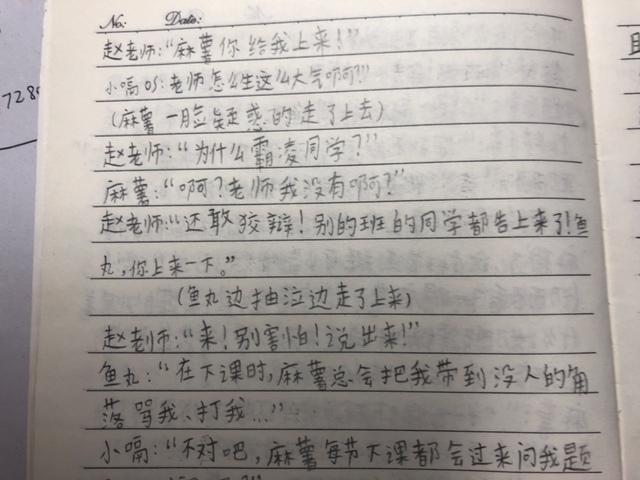 No: Date:
赵老师:“麻薯你给我上来!”
小嗝OS:老师怎么生这么大气啊?”
(麻薯一脸疑惑的走了上去)
赵老师:“为什么霸凌同学?”
麻薯:“啊?老师我没有啊?”
赵老师:“还敢狡辩!别的班的同学都告上来了!鱼
丸,你上来一下。”
(鱼丸边抽泣边走了上来)
赵老师:“来!别害怕!说出来!”
鱼丸:“在下课时,麻薯总会把我带到没人的角
落骂我、打我...”
小嗝:“不对吧,麻薯每节下课都会过来问我题
728